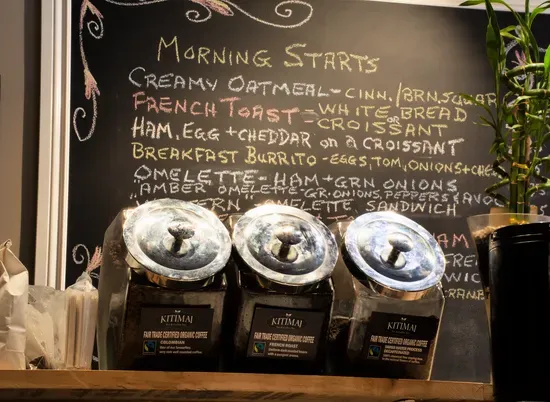 MORNING STARTS
CREAMY OATMEAL - CINN./BRN.SUGAR
FRENCH TOAST = WHITE BREAD
OR
CROISSANT
HAM, EGG + CHEDDAR ON A CROISSANT
BREAKFAST BURRITO - EGGS, TOM, ONIONS + CHE
OMELETTE - HAM + GRN ONIONS
"AMBER" OMELETTE - GR. ONIONS, PEPPERS & AVO
OMELETTE SANDWICH
HAM
FRE
WIC
KITIMAJ
FAIR TRADE CERTIFIED ORGANIC COFFEE
COLOMBIAN
KITIMAJ
FAIR TRADE CERTIFIED ORGANIC COFFEE
FRENCH ROAST
KITIMAJ
FAIR TRADE CERTIFIED ORGANIC COFFEE
DECAFFEINATED